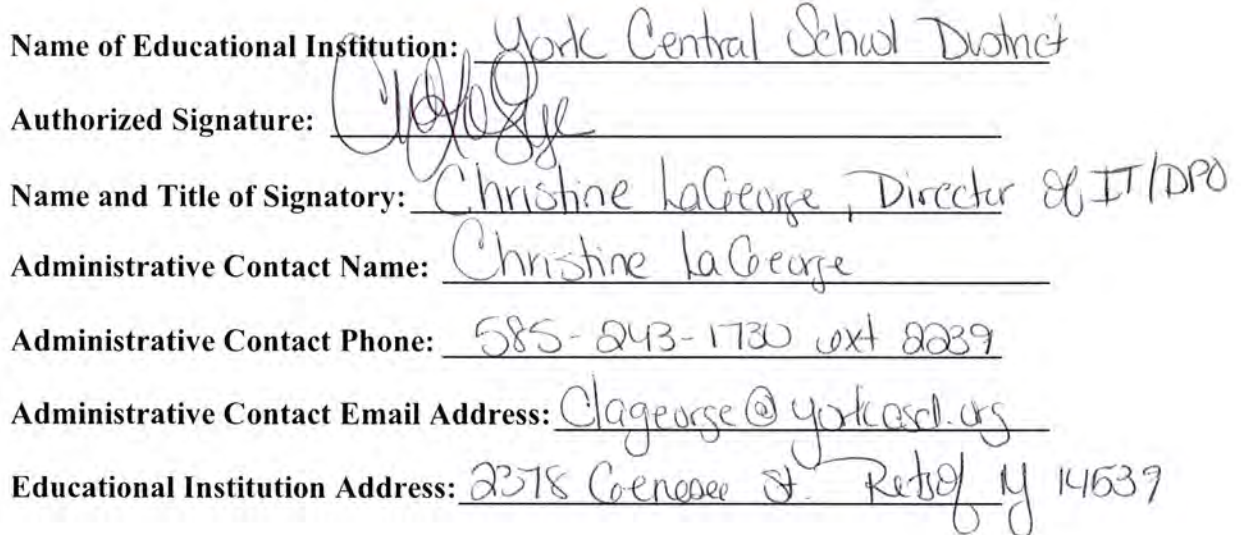 Name of Educational Institution: York Central School District
Authorized Signature:
Name and Title of Signatory: Christine LaGeorge, Director of IT/DPO
Administrative Contact Name: Christine LaGeorge
Administrative Contact Phone: 585-243-1730 ext 2239
Administrative Contact Email Address: Clageorge@yorkcsd.org
Educational Institution Address: 2378 Genesee St. Retsof NY 14539